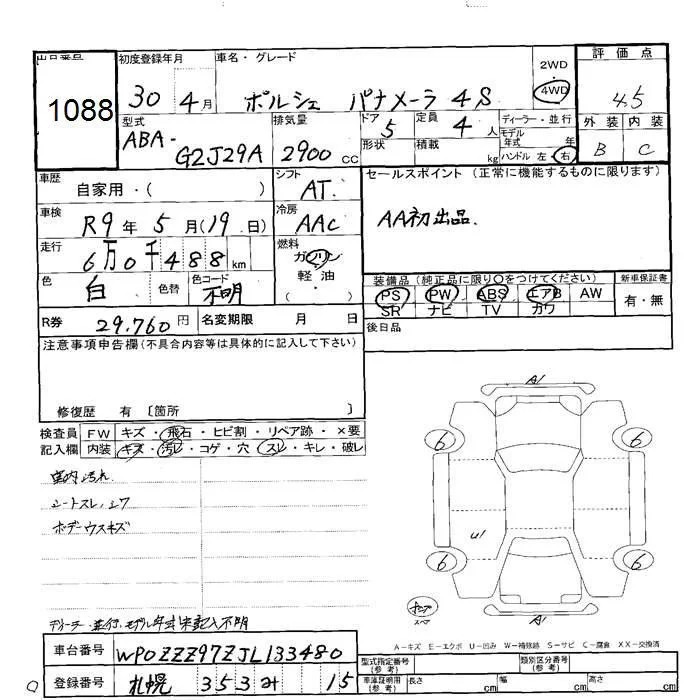 出品番号 初度登録年月 車名・グレード 2WD 評価点
1088 30年 4月 ポルシェ パナメーラ 4S 4WD 4.5
型式 排気量 ドア 定員 ディーラー・並行 外装 内装
ABA-G2J29A 2900cc 5 4人 モデル年式 年 B C
形状 積載 kg ハンドル 左・右
車歴 自家用・( ) シフト AT セールスポイント(正常に機能するものに限ります)
車検 R9年 5月(19日) 冷房 AAC AA初出品.
走行 6万0千488km 燃料 ガソリン
軽油
( )
色 白 色替 色コード 不明
装備品(純正品に限り○をつけてください) 新車保証書
PS PW ABS エアB AW 有・無
SR ナビ TV カワ
R券 29,760円 名変期限 月 日 後日品
注意事項申告欄(不具合内容等は具体的に記入して下さい)
修復歴 有 〔箇所 〕
検査員 FW キズ・飛石・ヒビ割・リペア跡・×要
記入欄 内装 キズ・汚レ・コゲ・穴・スレ・キレ・破レ
室内汚れ
シートスレ、シワ
ボデーウスキズ
A1
6 6
U1
6 6
A1
ディーラー・並行、モデル年式未記入不明
A-キズ E-エクボ U-凹み W-補修跡 S-サビ C-腐食 XX-交換済
車台番号 WP0ZZZ97ZJL133480
登録番号 札幌 353み 15
型式指定番号(参考) 類別区分番号(参考)
車庫証明用(参考) 長さ cm 幅 cm 高さ cm